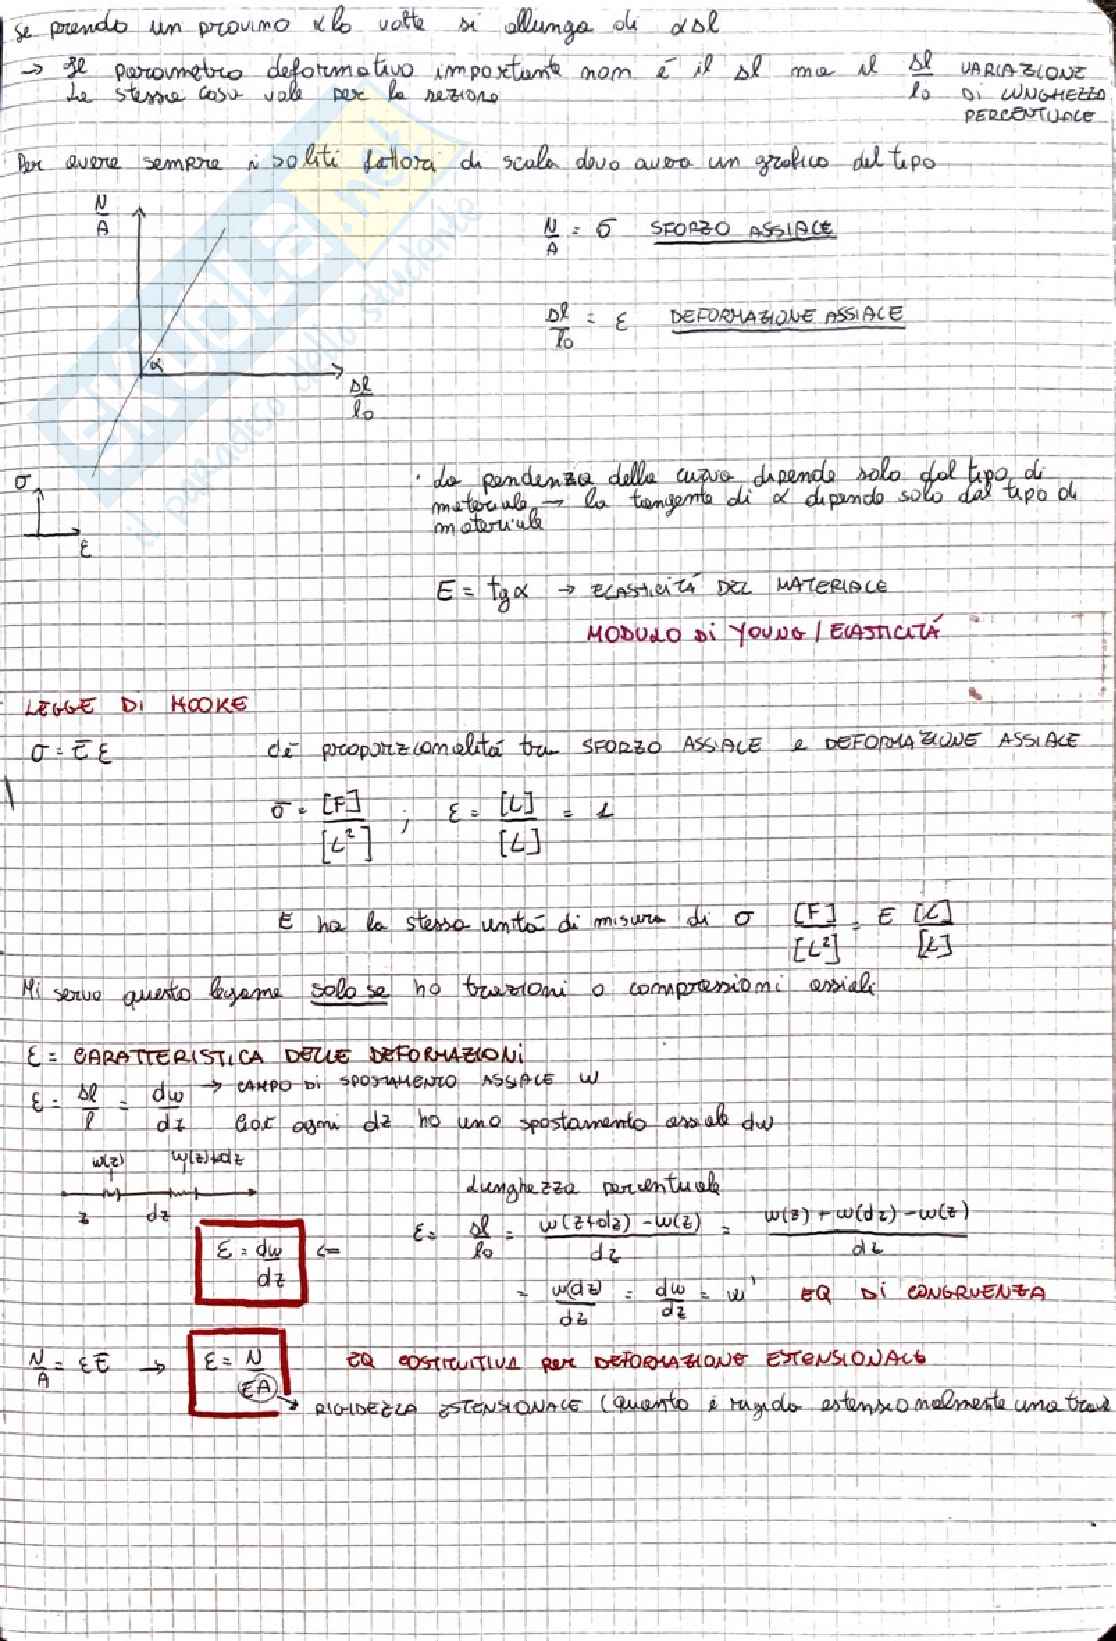 se prendo un provino α lo volte si allunga di αΔl
→ Il parametro deformativo importante non è il Δl ma il Δl/lo VARIAZIONE DI LUNGHEZZA PERCENTUALE
La stessa cosa vale per la sezione
Per avere sempre i soliti fattori di scala devo avere un grafico del tipo
N/A
N/A = σ SFORZO ASSIALE
Δl/lo = ε DEFORMAZIONE ASSIALE
α
Δl/lo
SKUOLA.net
il paradiso dello studente
σ
ε
· La pendenza della curva dipende solo dal tipo di
materiale → la tangente di α dipende solo dal tipo di
materiale
E = tgα → ELASTICITÁ DEL MATERIALE
MODULO DI YOUNG / ELASTICITÁ
LEGGE DI HOOKE
σ = E ε di proporzionalitá tra SFORZO ASSIALE e DEFORMAZIONE ASSIALE
σ = [F]/[L²] ; ε = [L]/[L] = 1
E ha la stessa unitá di misura di σ [F]/[L²] = E [L]/[L]
Mi serve questo legame solo se ho trazioni o compressioni assiali
ε = CARATTERISTICA DELLE DEFORMAZIONI
ε = Δl/l = dw/dz → CAMPO DI SPOSTAMENTO ASSIALE w
ogni dz ho uno spostamento assiale dw
w(z) w(z)+dz
z dz
Lunghezza percentuale
ε = Δl/lo = w(z+dz) - w(z)/dz = w(z) + w(dz) - w(z)/dz
ε = dw/dz ⇐
= w(dz)/dz = dw/dz = w' EQ DI CONGRUENZA
N/A = εE → ε = N/EA EQ COSTITUTIVA per DEFORMAZIONE ESTENSIONALE
→ RIGIDEZZA ESTENSIONALE (quanto è rigida estensionalmente una trave